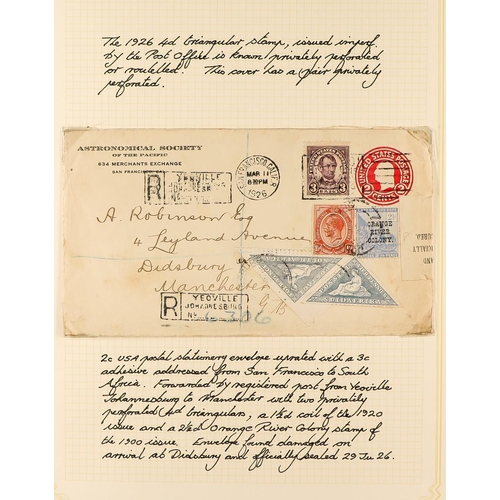 The 1926 4d triangular stamp, issued imperf.
by the Post Office is known privately perforated
or rouletted. This cover has a pair privately
perforated.
ASTRONOMICAL SOCIETY
OF THE PACIFIC
634 MERCHANTS EXCHANGE
SAN FRANCISCO
R
YEOVILLE
JOHANNESBURG
SAN FRANCISCO, CALIF.
MAR 11
8 PM
1926
3 CENTS 3
UNITED STATES POSTAGE
2 CENTS 2
A. Robinson Esq
4 Leyland Avenue
Didsbury
Manchester
G.B
ORANGE
RIVER
COLONY.
R
YEOVILLE
JOHANNESBURG
No 6306
2c USA postal stationery envelope uprated with a 3c
adhesive addressed from San Francisco to South
Africa. Forwarded by registered post from Yeoville
Johannesburg to Manchester with two privately
perforated 4d triangulars, a 1½d coil of the 1920
issue and a 2½d Orange River Colony stamp of
the 1900 issue. Envelope found damaged on
arrival at Didsbury and officially sealed 29 Ju 26.